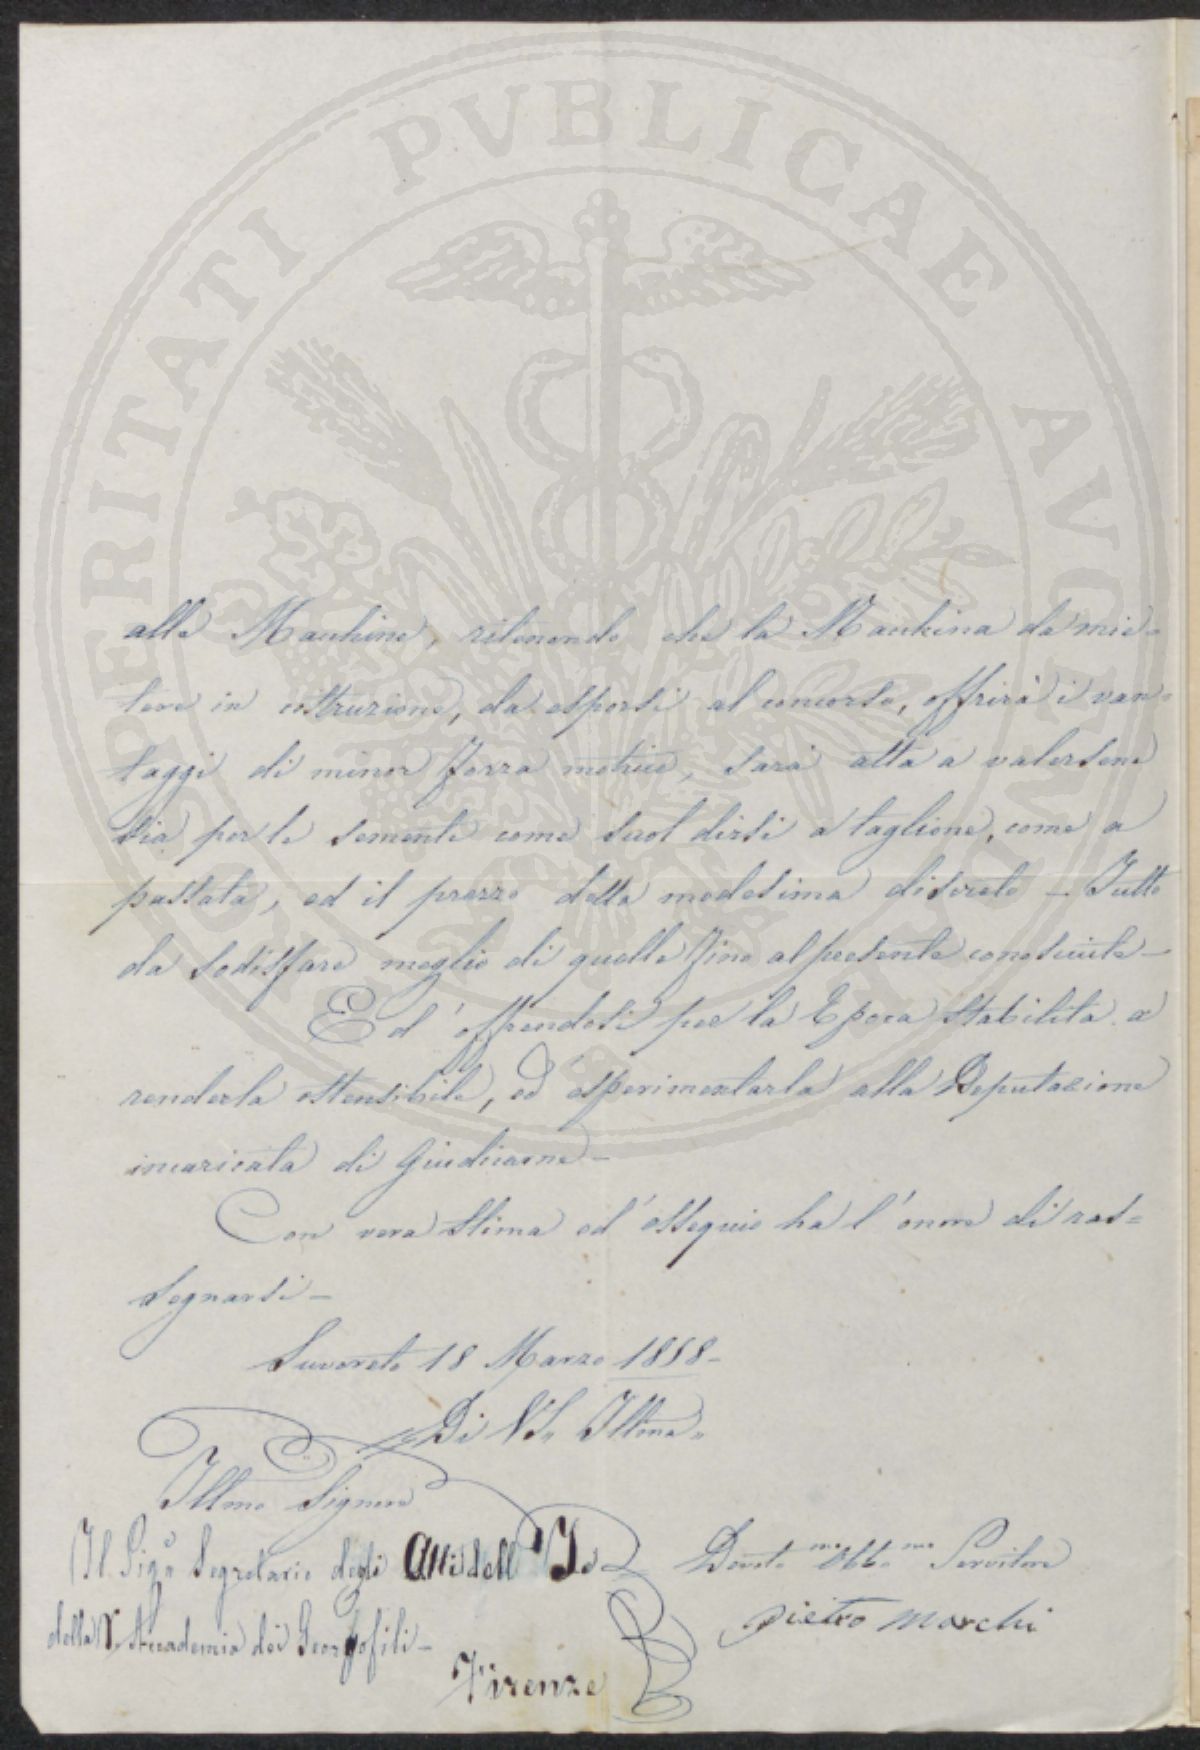 alle Macchine, ritenendo che la Macchina da mie=
tere in costruzione, da esporsi al concorso, offrirà i van=
taggi di minor forza motrice, sarà atta a valersene
sia per le sementi come suol dirsi a taglione, come a
passata, ed il prezzo della medesima discreto - Tutto
da sodisfare meglio di quelle fino al presente conosciute -
Ed' offrendosi per la Epoca stabilita a
renderla ostensibile, ed esperimentarla alla Deputazione
incaricata di Giudicarne -
Con vera stima ed' ossequio ha l' onore di ras=
segnarsi -
Suvereto 18 Marzo 1858 -
Di VS. Illma.
Illmo Signore
Il Sigr Segretario degli Atti dell
della R. Accademia dei Georgofili -
Firenze
Devotmo Obbmo Servitore
Pietro Marchi
PROSPERITATI PVBLICAE AVGENDAE